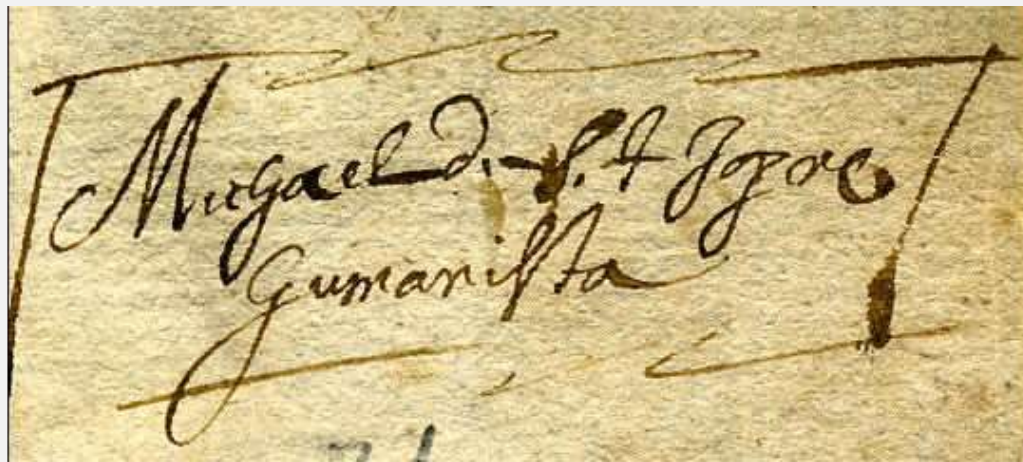 Miguel d. S. t Jgpe
Gumarista